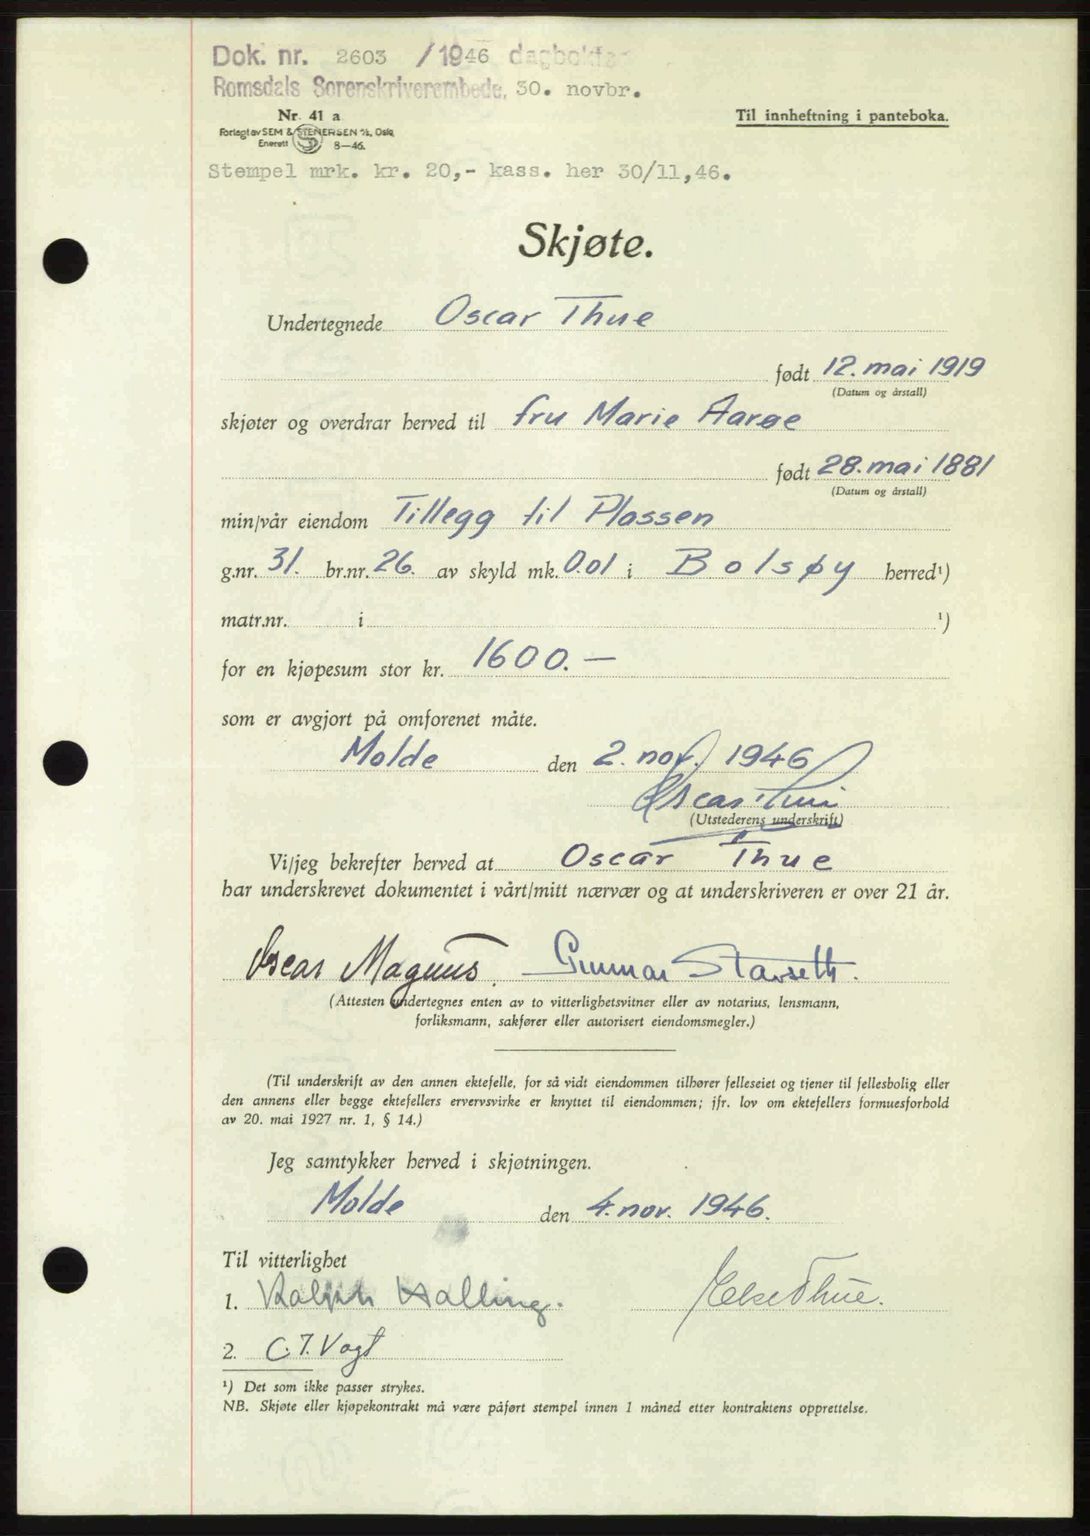 Dok. nr. 2603 /1946 dagbokført
Romsdals Sorenskriverembede, 30. novbr.
Nr. 41 a
Til innheftning i panteboka.
Forlagt av SEM & STENERSEN A/S, Oslo
Enerett 8—46.
Stempel mrk. kr. 20,- kass. her 30/11,46.
Skjøte.
Undertegnede Oscar Thue
født 12. mai 1919
(Datum og årstall)
skjøter og overdrar herved til fru Marie Aarøe
født 28. mai 1881
(Datum og årstall)
min/vår eiendom Tillegg til Plassen
g.nr. 31. br.nr. 26. av skyld mk. 0.01 i Bolsøy herred¹)
matr.nr. i ¹)
for en kjøpesum stor kr. 1600.—
som er avgjort på omforenet måte.
Molde den 2. nov. 1946
Oscar Thue
(Utstederens underskrift)
Vi/jeg bekrefter herved at Oscar Thue
har underskrevet dokumentet i vårt/mitt nærvær og at underskriveren er over 21 år.
Oscar Magnus. Gunnar Stavseth.
(Attesten undertegnes enten av to vitterlighetsvitner eller av notarius, lensmann,
forliksmann, sakfører eller autorisert eiendomsmegler.)
(Til underskrift av den annen ektefelle, for så vidt eiendommen tilhører felleseiet og tjener til fellesbolig eller
den annens eller begge ektefellers ervervsvirke er knyttet til eiendommen; jfr. lov om ektefellers formuesforhold
av 20. mai 1927 nr. 1, § 14.)
Jeg samtykker herved i skjøtningen.
Molde den 4. nov. 1946.
Til vitterlighet
1. Halling. Else Thue.
2. C. J. Vogt
¹) Det som ikke passer strykes.
NB. Skjøte eller kjøpekontrakt må være påført stempel innen 1 måned etter kontraktens opprettelse.